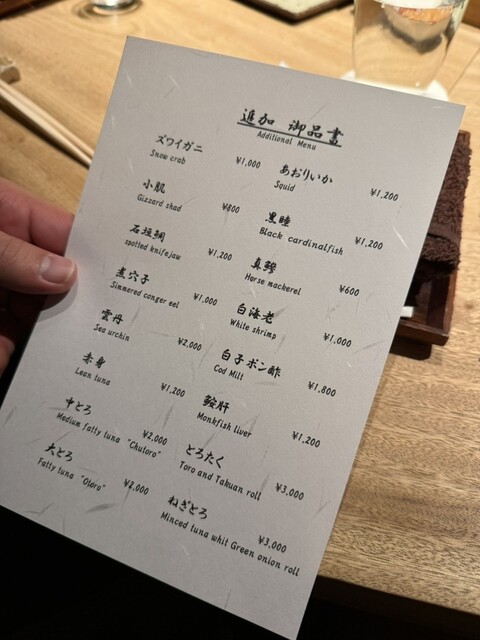 追加 御品書
Additional Menu
ズワイガニ
Snow crab
¥1,000
小肌
Gizzard shad
¥800
石垣鯛
spotted knifejaw
¥1,200
煮穴子
Simmered conger eel
¥1,000
雲丹
Sea urchin
¥2,000
赤身
Lean tuna
¥1,200
中とろ
Medium fatty tuna “Chutoro”
¥2,000
大とろ
Fatty tuna “Otoro”
¥2,000
あおりいか
Squid
¥1,200
黒睦
Black cardinalfish
¥1,200
真鯵
Horse mackerel
¥600
白海老
White shrimp
¥1,000
白子ポン酢
Cod Milt
¥1,800
鮟肝
Monkfish liver
¥1,200
とろたく
Toro and Takuan roll
¥3,000
ねぎとろ
Minced tuna whit Green onion roll
¥3,000